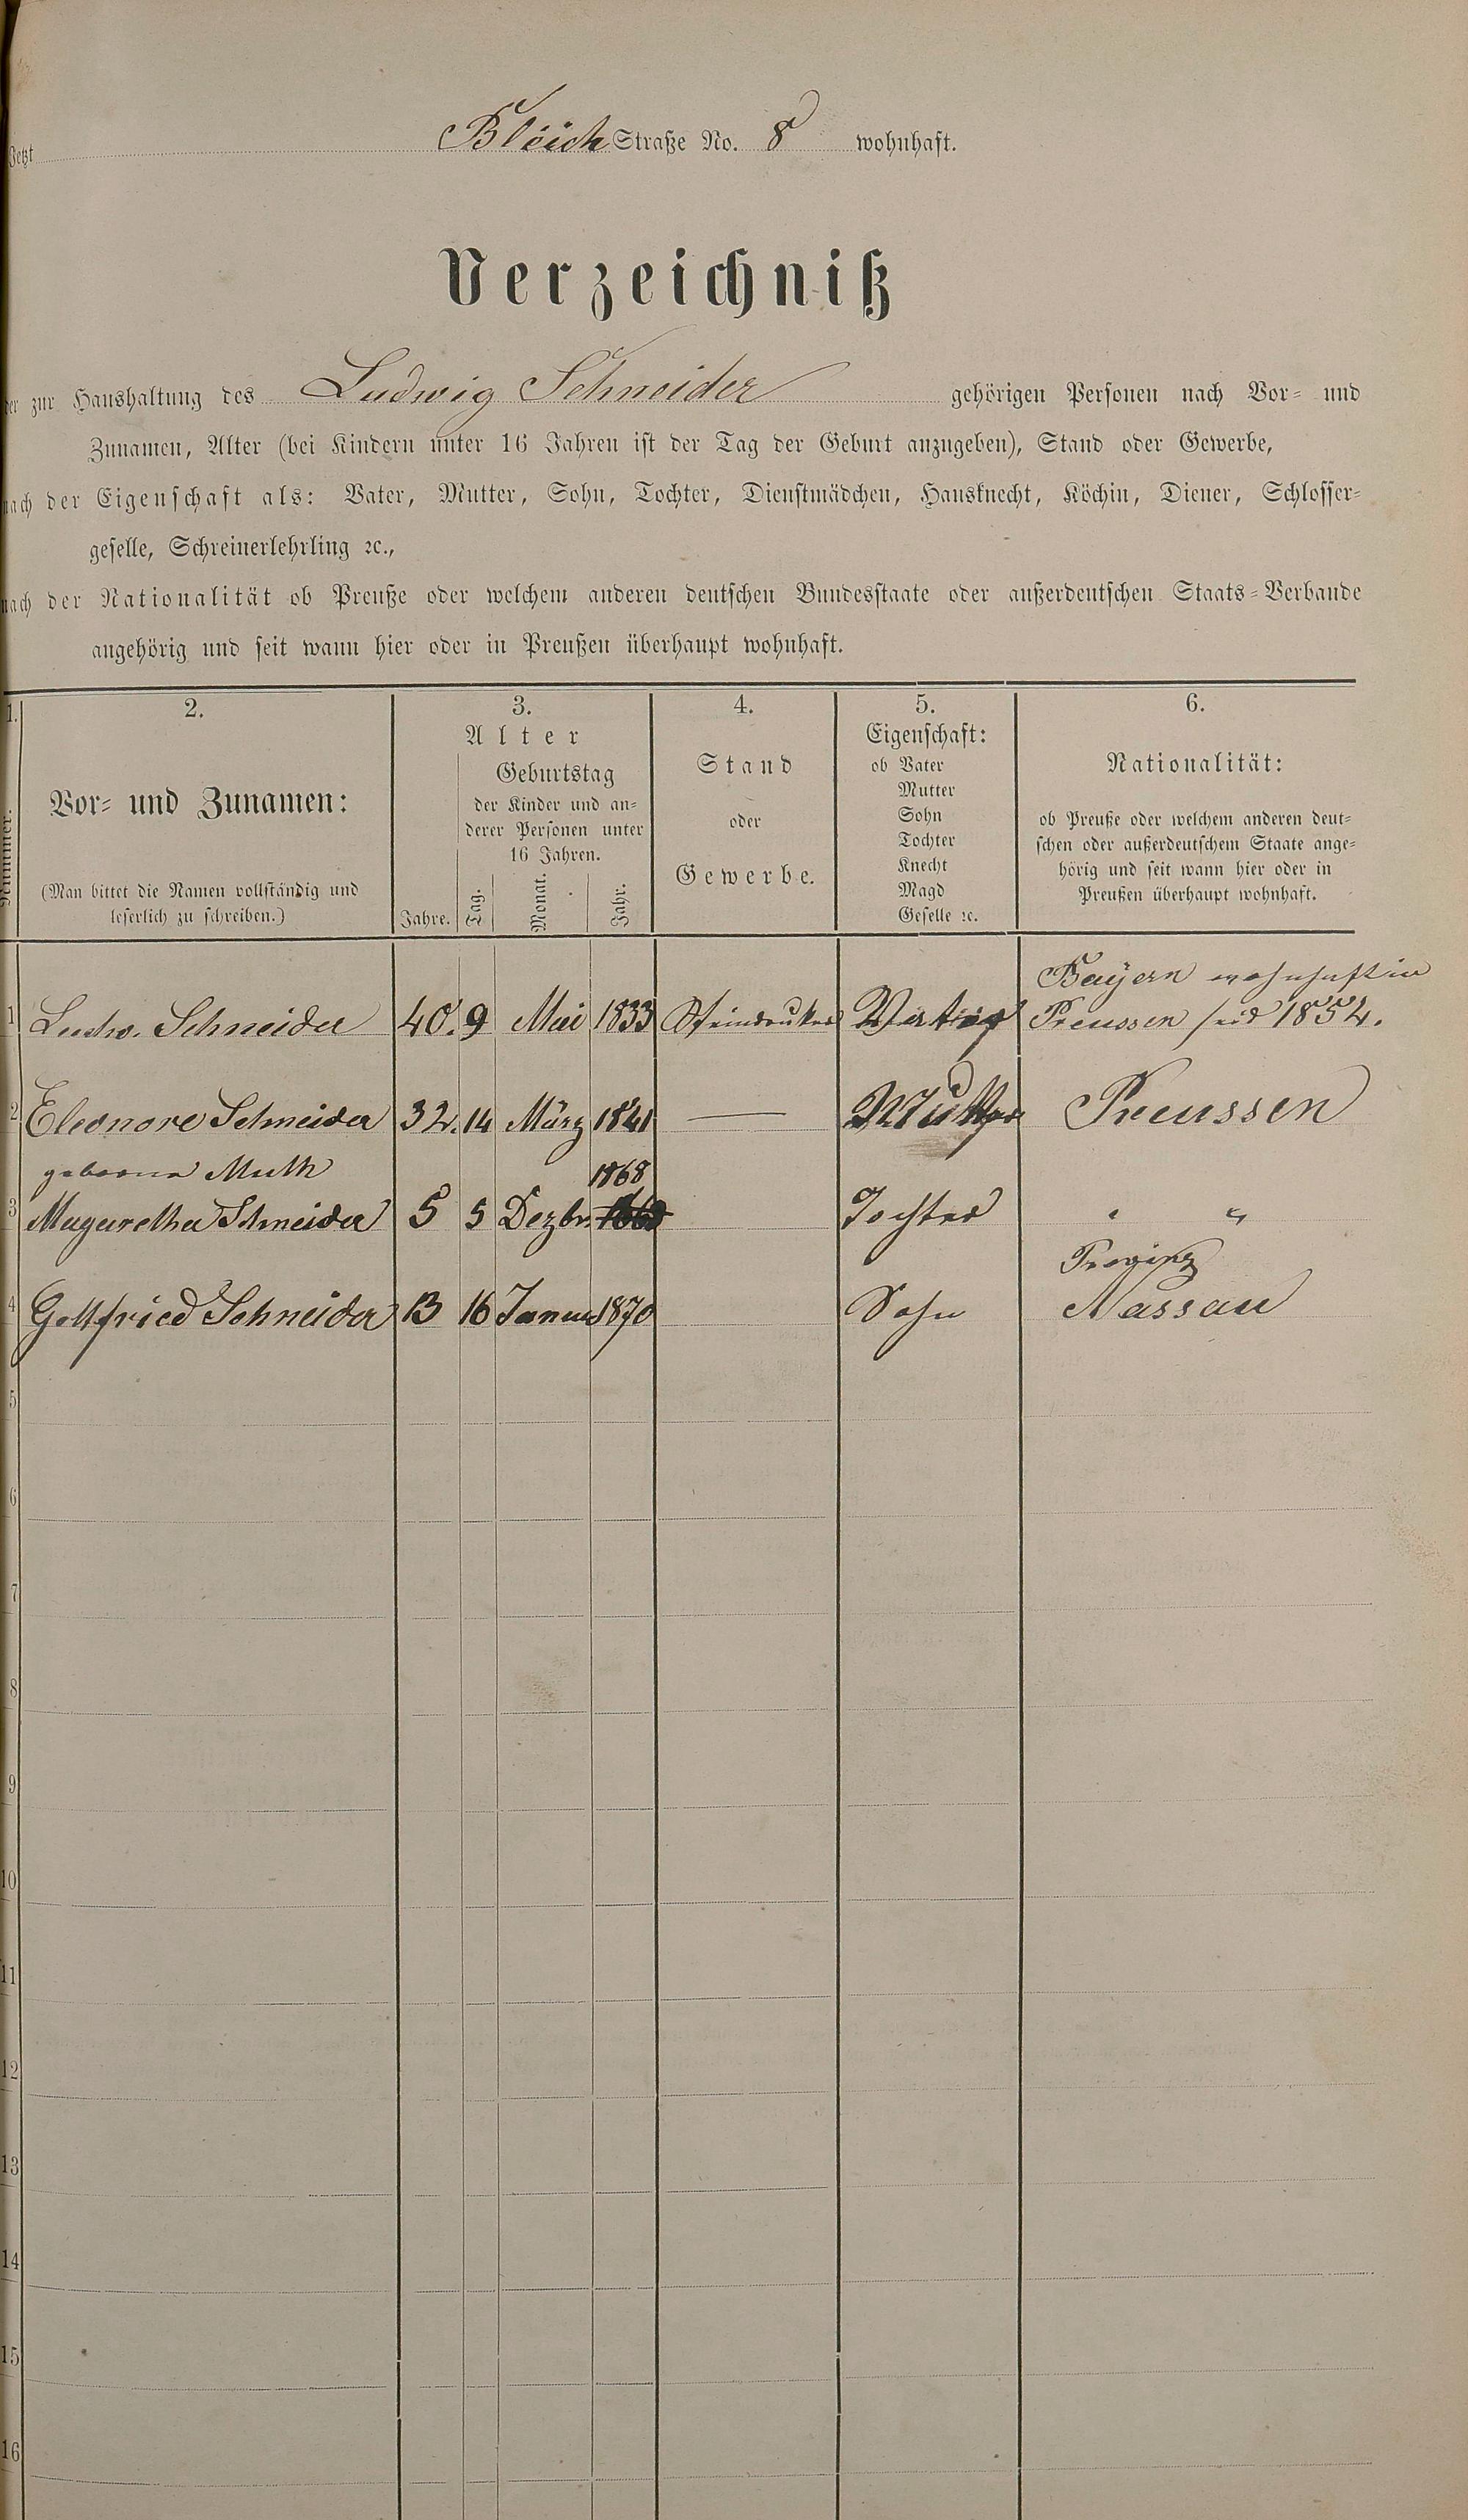 Jetzt Bleich Straße No. 8 wohnhaft.
Verzeichniß
der zur Haushaltung des Ludwig Schneider gehörigen Personen nach Vor- und
Zunamen, Alter (bei Kindern unter 16 Jahren ist der Tag der Geburt anzugeben), Stand oder Gewerbe,
nach der Eigenschaft als: Vater, Mutter, Sohn, Tochter, Dienstmädchen, Hausknecht, Köchin, Diener, Schlosser-
geselle, Schreinerlehrling ꝛc.,
nach der Nationalität ob Preuße oder welchem anderen deutschen Bundesstaate oder außerdeutschen Staats-Verbande
angehörig und seit wann hier oder in Preußen überhaupt wohnhaft.
1.
Nummer.
2.
Vor- und Zunamen:
(Man bittet die Namen vollständig und
leserlich zu schreiben.)
3.
Alter
Geburtstag
der Kinder und an-
derer Personen unter
16 Jahren.
Jahre. Tag. Monat. Jahr.
4.
Stand
oder
Gewerbe.
5.
Eigenschaft:
ob Vater
Mutter
Sohn
Tochter
Knecht
Magd
Geselle ꝛc.
6.
Nationalität:
ob Preuße oder welchem anderen deut-
schen oder außerdeutschem Staate ange-
hörig und seit wann hier oder in
Preußen überhaupt wohnhaft.
Bayern wohnhaft in
1 Ludw. Schneider 40. 9 Mai 1833 Steindruker Preussen seid 1854.
2 Eleonore Schneider 32. 14 März 1841 — Mutter Preussen
geborne Muth
1868
3 Magaretha Schneider 5 5 Dezbr. Tochter " "
Provinz
4 Gottfried Schneider 3 16 Januar 1870 Sohn Nassau
5
6
7
8
9
10
11
12
13
14
15
16